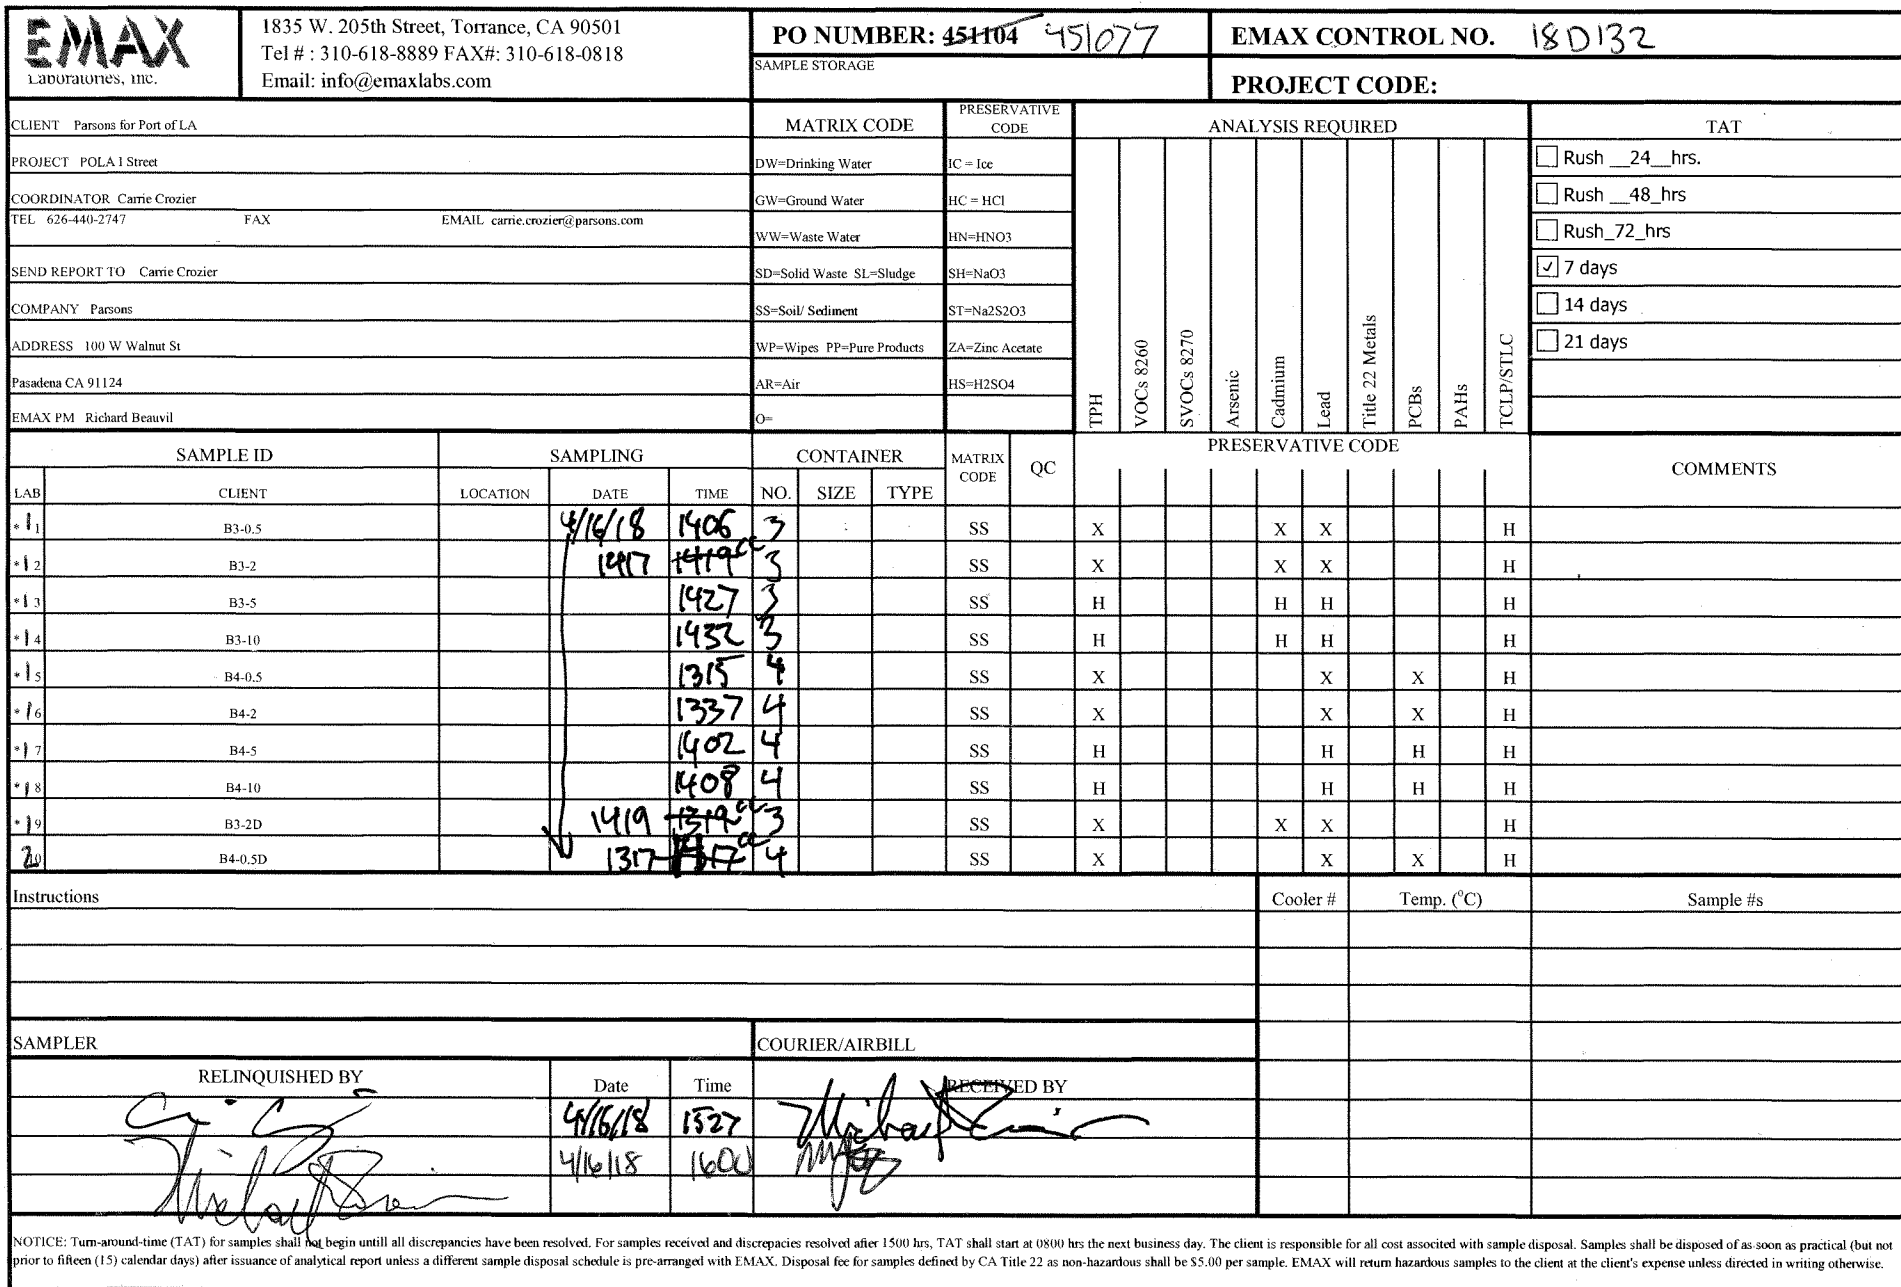 EMAX
Laboratories, Inc.
1835 W. 205th Street, Torrance, CA 90501
Tel # : 310-618-8889 FAX#: 310-618-0818
Email: info@emaxlabs.com
PO NUMBER: 451104 451077
SAMPLE STORAGE
EMAX CONTROL NO. 18D132
PROJECT CODE:
CLIENT Parsons for Port of LA
PROJECT POLA I Street
COORDINATOR Carrie Crozier
TEL 626-440-2747 FAX EMAIL carrie.crozier@parsons.com
SEND REPORT TO Carrie Crozier
COMPANY Parsons
ADDRESS 100 W Walnut St
Pasadena CA 91124
EMAX PM Richard Beauvil
MATRIX CODE
DW=Drinking Water
GW=Ground Water
WW=Waste Water
SD=Solid Waste SL=Sludge
SS=Soil/ Sediment
WP=Wipes PP=Pure Products
AR=Air
O=
PRESERVATIVE
CODE
IC = Ice
HC = HCl
HN=HNO3
SH=NaO3
ST=Na2S2O3
ZA=Zinc Acetate
HS=H2SO4
ANALYSIS REQUIRED
TPH
VOCs 8260
SVOCs 8270
Arsenic
Cadmium
Lead
Title 22 Metals
PCBs
PAHs
TCLP/STLC
TAT
Rush __24__hrs.
Rush __48_hrs
Rush_72_hrs
7 days
14 days
21 days
SAMPLE ID SAMPLING CONTAINER MATRIX CODE QC PRESERVATIVE CODE COMMENTS
LAB CLIENT LOCATION DATE TIME NO. SIZE TYPE
*11 B3-0.5 4/16/18 1406 3 SS X X X H
*12 B3-2 1417 1419 cc 3 SS X X X H
*13 B3-5 1427 3 SS H H H H
*14 B3-10 1432 3 SS H H H H
*15 B4-0.5 1315 4 SS X X X H
*16 B4-2 1337 4 SS X X X H
*17 B4-5 1402 4 SS H H H H
*18 B4-10 1408 4 SS H H H H
*19 B3-2D 1419 1319 cc 3 SS X X X H
20 B4-0.5D 1317 cc 4 SS X X X H
Instructions Cooler # Temp. (°C) Sample #s
SAMPLER COURIER/AIRBILL
RELINQUISHED BY Date Time RECEIVED BY
4/16/18 1527
4/16/18 1600
NOTICE: Turn-around-time (TAT) for samples shall not begin untill all discrepancies have been resolved. For samples received and discrepacies resolved after 1500 hrs, TAT shall start at 0800 hrs the next business day. The client is responsible for all cost associted with sample disposal. Samples shall be disposed of as soon as practical (but not
prior to fifteen (15) calendar days) after issuance of analytical report unless a different sample disposal schedule is pre-arranged with EMAX. Disposal fee for samples defined by CA Title 22 as non-hazardous shall be $5.00 per sample. EMAX will return hazardous samples to the client at the client's expense unless directed in writing otherwise.